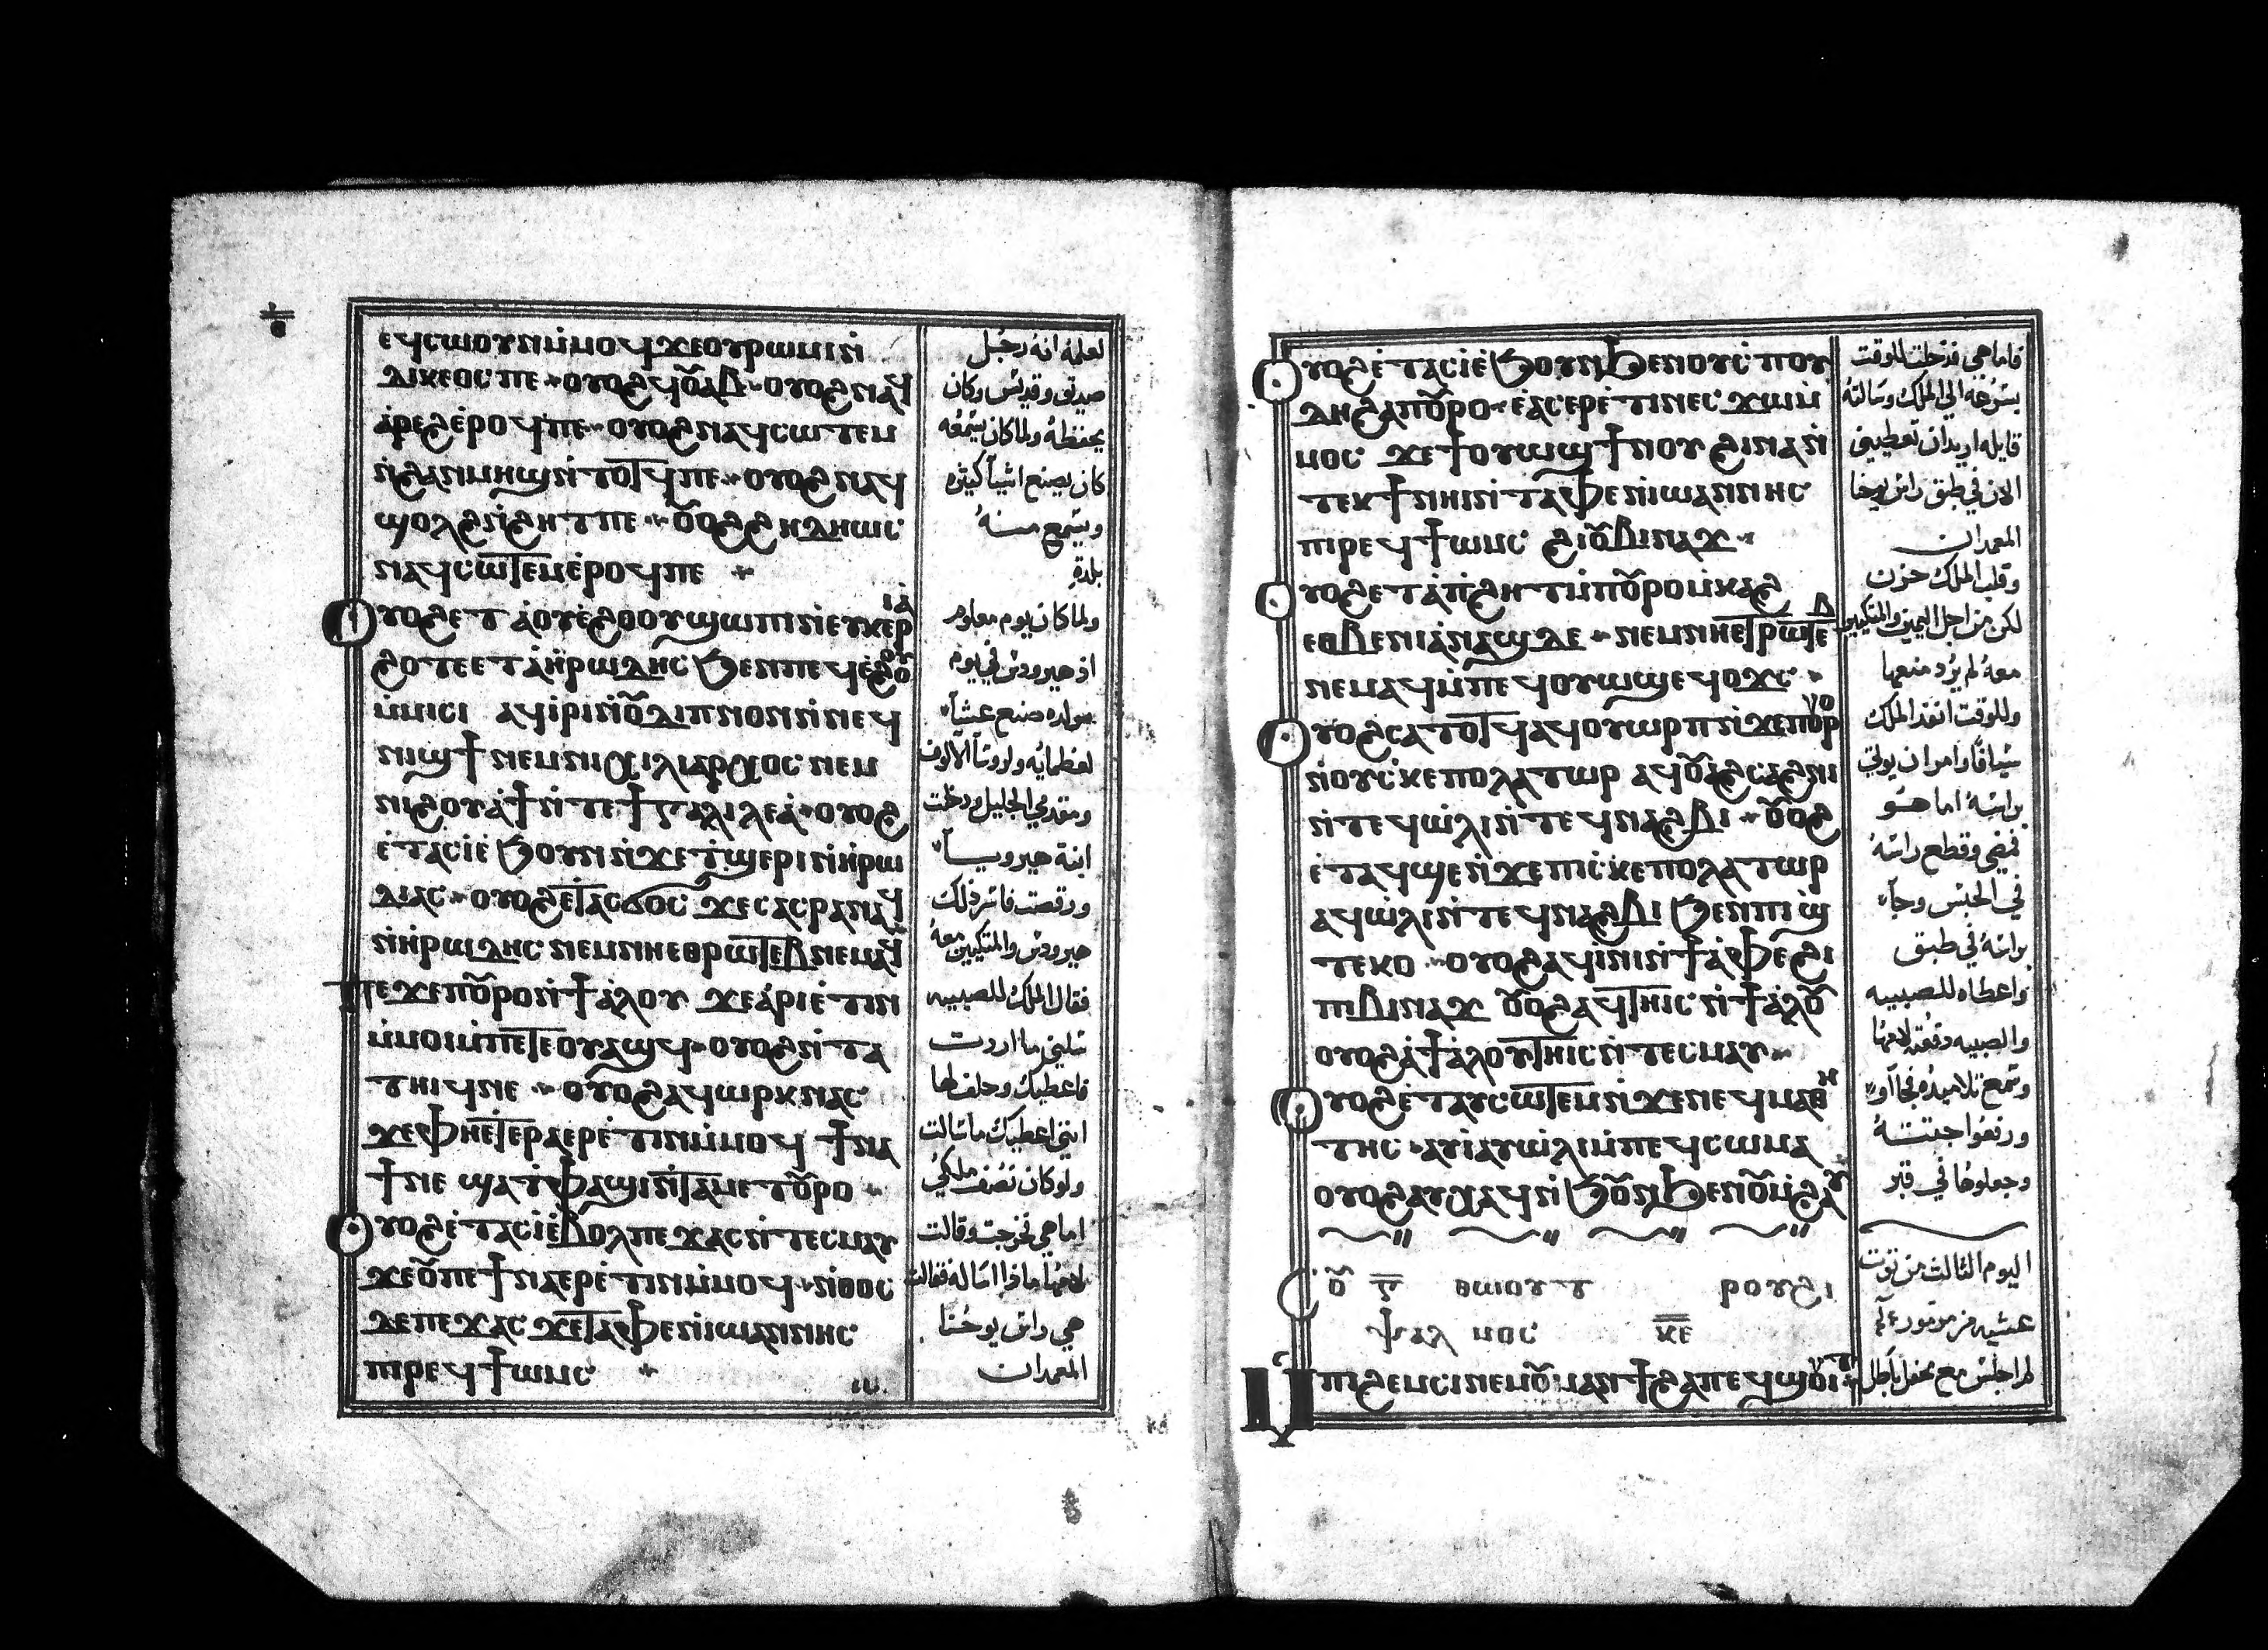 ⲉϥⲥⲱⲟⲩⲛⲙ̇ⲙⲟϥ ϫⲉⲟⲩⲣⲱⲙⲓⲛ̇
ⲇⲓⲕⲉⲟⲥ ⲡⲉ ⲟⲩⲟϩ ϥⲟ̅ⲁⲃ ⲟⲩⲟϩ ⲛⲁϥ
ⲁ̇ⲣⲉϩ ⲉ̇ⲣⲟϥ ⲡⲉ ⲟⲩⲟϩ ⲛⲁϥⲥⲱⲧⲉⲙ
ⲛ̇ϩⲁⲛⲙⲏϣ ⲛ̇ⲧⲟⲧϥ ⲡⲉ ⲟⲩⲟϩ ⲛⲁϥ
ϣⲟⲗϩ ⲛ̇ϩⲏⲧ ⲡⲉ ⲟ̅ⲟϩ ϩⲏⲇⲏⲱⲥ
ⲛⲁϥⲥⲱⲧⲉⲙ ⲉ̇ⲣⲟϥ ⲡⲉ
ⲟⲩⲟϩ ⲉⲧ ⲁⲟⲩⲉ̇ϩⲟⲟⲩ ϣⲱⲡⲓ ⲛ̇ⲉⲩⲕⲉⲣⲓⲁ̇
ϩⲟⲧⲉ ⲉⲧⲁ ⲏ̇ⲣⲱⲇⲏⲥ ϧⲉⲛ ⲡⲉϥⲉ̇ϩⲟⲟⲩ
ⲙ̇ⲙⲓⲥⲓ ⲁϥⲓ̇ⲣⲓ ⲛ̇ⲟ̅ⲇⲓⲡⲛⲟⲛ ⲛ̇ⲛⲉϥ
ⲛⲓϣϯ ⲛⲉⲙ ⲛⲓⲭⲓⲗⲓⲁⲣⲭⲟⲥ ⲛⲉⲙ
ⲛⲓϩⲟⲩⲁ̇ϯ ⲛ̇ⲧⲉ ϯⲅⲁⲗⲓⲗⲉⲁ̇ ⲟⲩⲟϩ
ⲉ̇ⲧⲁⲥⲓ̇ ⲉ̇ϧⲟⲩⲛ ⲛ̇ϫⲉ ⲧ̇ϣⲉⲣⲓ ⲛ̇ⲏ̇ⲣⲱ
ⲇⲓⲁⲥ ⲟⲩⲟϩ ⲉⲧⲁⲥϭⲟⲥ ϫⲉⲥ ⲁⲥⲣⲁⲛⲁϥ
ⲛ̇ⲏ̇ⲣⲱⲇⲏⲥ ⲛⲉⲙ ⲛⲏⲉⲑⲣⲱⲧⲉⲃ ⲛⲉⲙⲁϥ
ⲡⲉϫⲉ ⲡⲟ̅ⲣⲟ ⲛ̇ϯⲁ̇ⲗⲟⲩ ϫⲉ ⲁ̇ⲣⲓⲉ̇ⲧⲓⲛ
ⲙ̇ⲙⲟⲓ ⲙ̇ⲡⲉⲧⲉⲟⲩⲁϣϥ ⲟⲩⲟϩ ⲛ̇ⲧⲁ
ⲧⲏⲓϥ ⲛⲉ ⲟⲩⲟϩ ⲁϥⲱⲣⲕ ⲛⲁⲥ
ϫⲉ ⲫⲏⲉⲧⲉⲣⲁⲉⲣⲉ̇ⲧⲓⲛ ⲙ̇ⲙⲟϥ ϯⲛⲁ
ϯ ⲛⲉ ϣⲁ ⲧ̇ⲫⲁϣⲓ ⲛ̇ⲧⲁⲙⲉⲧⲟ̅ⲣⲟ
ⲟⲩⲟϩ ⲉ̇ⲧⲁⲥⲓ̇ ⲉ̇ⲃⲟⲗ ⲡⲉϫⲁⲥ ⲛ̇ⲧⲉⲥⲙⲁⲩ
ϫⲉ ⲟ̅ ⲡⲉ ϯⲛⲁⲉⲣⲉ̇ⲧⲓⲛ ⲙ̇ⲙⲟϥ ⲛ̇ⲑⲟⲥ
ⲇⲉ ⲡⲉϫⲁⲥ ϫⲉ ⲧⲁ̇ⲫⲉ ⲛ̇ⲓⲱⲁⲛⲛⲏⲥ
ⲡⲓⲣⲉϥϯⲱⲙⲥ
لعلمه انه رجل
صديق وقديس وكان
يحفظه ولما كان يسمعه
كان يصنع اشيآ كثيره
ويسمع منه
بلذة
ولما كان يوم معلوم
اذ هيرودس في يوم
مولده صنع عشيآ
لعظمايه ولروسآ الالوف
ومقدمي الجليل ودخلت
ابنة هيروديا
ورقصت فاسر ذلك
هيرودس والمتكيين معه
فقال الملك للصبيه
سليني ما اردت
فاعطيك وحلف لها
انني اعطيك ما سالت
ولو كان نصف ملكي
اما هي فخرجت وقالت
لامها ماذا اساله فقالت
هي راس يوحنا
المعمدان
ⲟⲩⲟϩ ⲉ̇ⲧⲁⲥⲓ̇ ⲉ̇ϧⲟⲩⲛ ϧⲉⲛ ⲟⲩⲥ̇ⲡⲟⲩ
ⲇⲏ ϩⲁ ⲡⲟ̅ⲣⲟ ⲉ̇ⲁⲥⲉⲣⲉ̇ⲧⲓⲛ ⲉⲥϫⲱ ⲙ̇
ⲙⲟⲥ ϫⲉ ϯⲟⲩⲱϣ ϯⲛⲟⲩ ϩⲓⲛⲁ ⲛ̇
ⲧⲉⲕϯ ⲛⲏⲓ ⲛ̇ⲧⲁ̇ⲫⲉ ⲛ̇ⲓⲱⲁⲛⲛⲏⲥ
ⲡⲓⲣⲉϥϯⲱⲙⲥ ϩⲓ ⲟ̅ⲃⲓⲛⲁϫ
ⲟⲩⲟϩ ⲉⲧⲁ ⲡ̇ϩⲏⲧ ⲙ̇ⲡⲟ̅ⲣⲟ ⲙ̇ⲕⲁϩ
ⲉⲑⲃⲉ ⲛⲓⲁ̇ⲛⲁϣ ⲇⲉ ⲛⲉⲙ ⲛⲏⲉⲧⲣⲱⲧⲉⲃ
ⲛⲉⲙⲁϥ ⲙ̇ⲡⲉϥⲟⲩⲱϣ ⲉϥⲟϫⲥ
ⲟⲩⲟϩ ⲥⲁⲧⲟⲧϥ ⲁϥⲟⲩⲱⲣⲡ ⲛ̇ϫⲉ ⲡⲟⲩⲣⲟ
ⲛ̇ⲟⲩⲥ̇ⲕⲉⲡⲟⲗⲁⲧⲱⲣ ⲁϥⲟ̅ⲁϩⲥⲁϩⲛⲓ
ⲛ̇ⲧⲉϥⲱ̇ⲗⲓ ⲛ̇ⲧⲉϥⲛⲁϩⲃⲓ ⲟ̅ⲟϩ
ⲉ̇ⲧⲁϥϣⲉ ⲛ̇ϫⲉ ⲡⲓⲥ̇ⲕⲉⲡⲟⲗⲁⲧⲱⲣ
ⲁϥⲱ̇ⲗⲓ ⲛ̇ⲧⲉϥⲛⲁϩⲃⲓ ϧⲉⲛ ⲡⲓϣ̇
ⲧⲉⲕⲟ ⲟⲩⲟϩ ⲁϥⲓ̇ⲛⲓ ⲛ̇ϯⲁ̇ⲫⲉ ϩⲓ
ⲡⲓⲃⲓⲛⲁϫ ⲟ̅ⲟϩ ⲁϥⲧⲏⲓⲥ ⲛ̇ϯⲁ̇ⲗⲟ̅
ⲟⲩⲟϩ ⲁ̇ ϯⲁ̇ⲗⲟⲩ ⲧⲏⲓⲥ ⲛ̇ⲧⲉⲥⲙⲁⲩ
ⲟⲩⲟϩ ⲉ̇ⲧⲁⲩⲥⲱⲧⲉⲙ ⲛ̇ϫⲉ ⲛⲉϥⲙⲁⲑⲏ
ⲧⲏⲥ ⲁⲩⲓ̇ ⲁⲩⲱ̇ⲗⲓ ⲙ̇ⲡⲉϥⲥⲱⲙⲁ
ⲟⲩⲟϩ ⲁⲩⲭⲁϥ ⲛ̇ϧⲟ̅ⲛ ϧⲉⲛ ⲟ̅ⲙ̇ϩⲁⲩ
ⲥⲟ̅ ⲅ̅ ⲑⲱⲟⲩⲧ ⲣⲟⲩϩⲓ
ⲯⲁⲗⲙⲟⲥ ⲕ̅ⲉ̅
ⲙ̇ⲡⲓϩⲉⲙⲥⲓ ⲛⲉⲙ ⲟ̅ⲙⲁⲛϯϩⲁⲡ ⲉϥϣⲟⲩⲓⲧ
فاما هي فدخلت للوقت
بسرعه الي الملك وسالته
قايله اريد ان تعطيني
الان في طبق راس يوحنا
المعمدان
وقلب الملك حزن
لكن من اجل اليمين والمتكيين
معه لم يرد منعها
وللوقت انفذ الملك
سيافا وامر ان يوتي
براسه اما هو
فمضي وقطع راسه
في الحبس وجآ
براسه في طبق
واعطاه للصبيه
والصبيه دفعته لامها
وسمع تلاميذه فجآاو
ورفعوا جثته
وجعلوها في قبر
اليوم الثالث من توت
عشيه من مزمور
لم اجلس مع محفل باطل